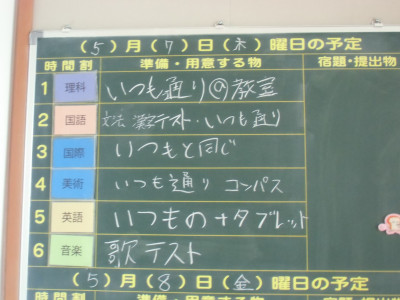 (5)月(7)日(木)曜日の予定
時間割 準備・用意する物 宿題・提出物
1 理科 いつも通り@教室
2 国語 文法 漢字テスト・いつも通り
3 国際 いつもと同じ
4 美術 いつも通り コンパス
5 英語 いつもの+タブレット
6 音楽 歌テスト
(5)月(8)日(金)曜日の予定
時間割 準備・用意する物 宿題・提出物